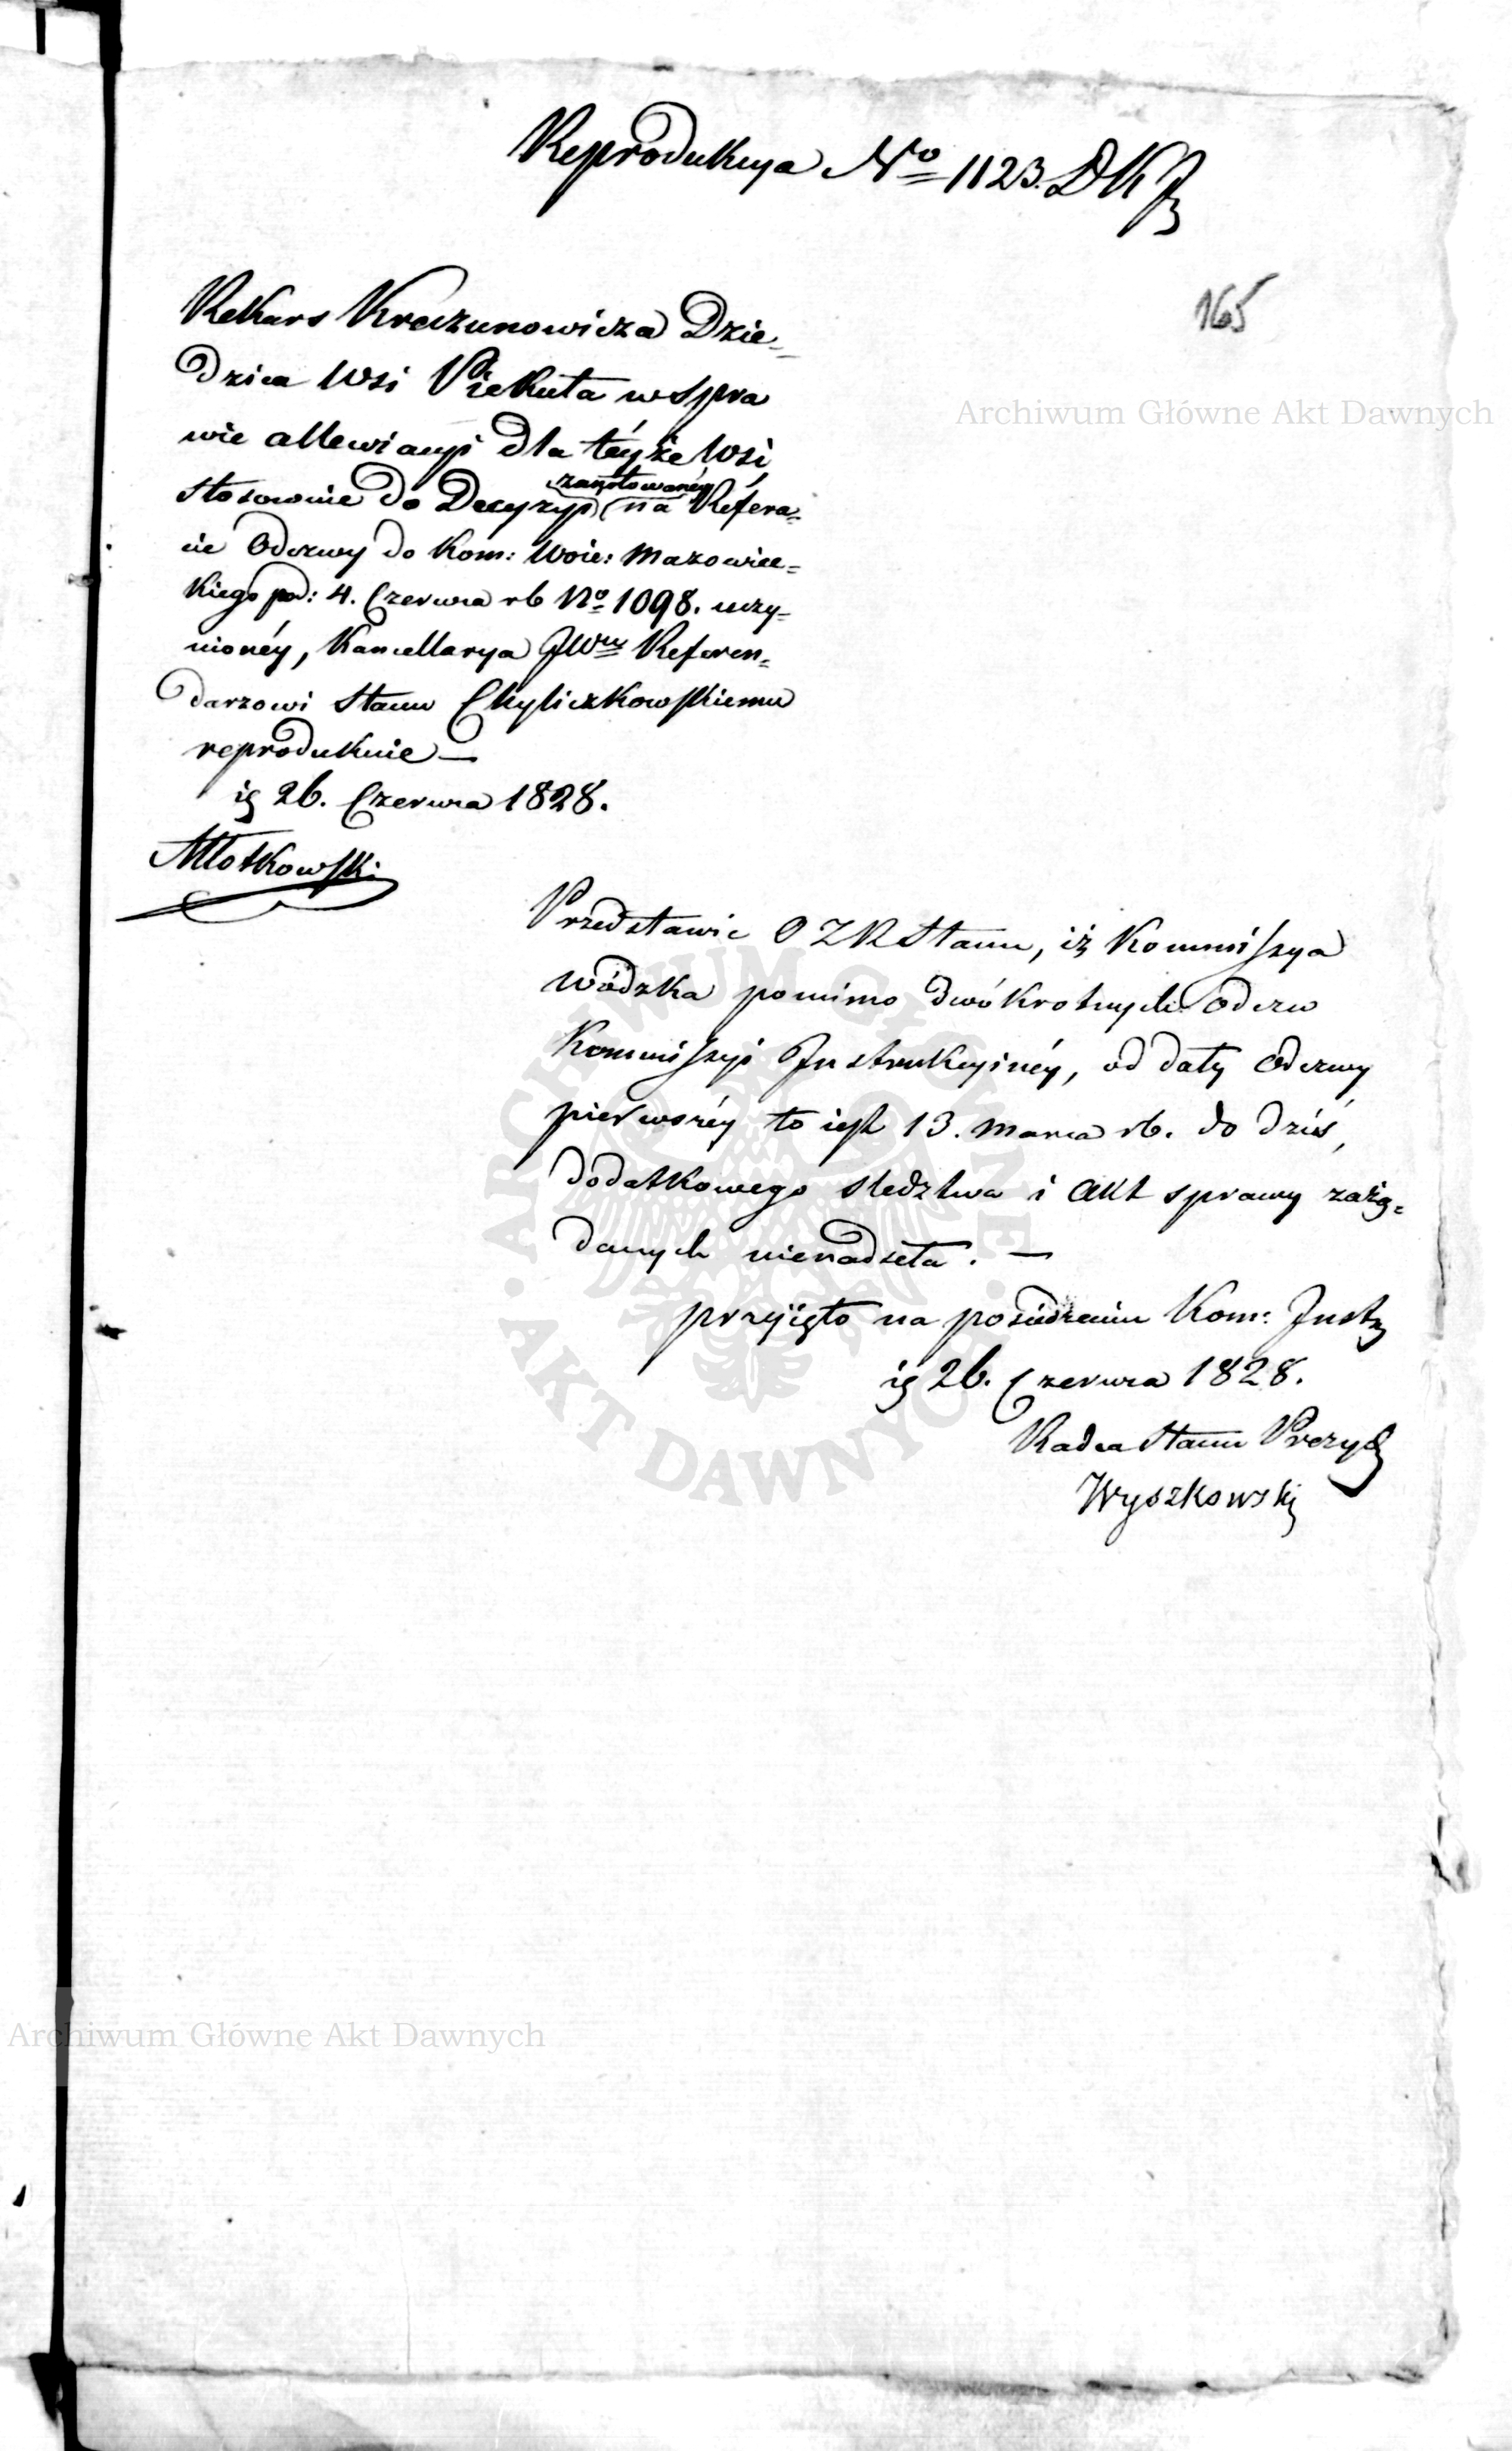 Reprodukcya No 1123. DKJ
165
Rekurs Kraczunowicza Dzie-
dzica Wsi Piekuta w spra
wie allewiacyi dla téyże Wsi
stosownie do Decyzyi zanotowanéy na Refera-
cie Odezwy do Kom: Woie: Mazowiec-
kiego pod: 4. Czerwca rb No 1098. uczy-
nionéy, Kancellarya JWmu Referen-
darzowi Stanu Chyliczkowskiemu
reprodukuie —
26. Czerwca 1828.
Młotkowski
Przedstawic O Z R Stanu, iż Kommissya
Wódzka pomimo dwókrotnych Odezw
Kommissyi Instrukcyinéy, od daty Odezwy
pierwszéy to iest 13. Marca rb. do dziś,
dodatkowego sledztwa i Akt sprawy zażą-
danych nienadseła. —
przyięto na posiedzeniu Kom: Instr
26. Czerwca 1828.
Radca Stanu Prezyd
Wyszkowski
Archiwum Główne Akt Dawnych
Archiwum Główne Akt Dawnych
ARCHIWUM GŁÓWNE AKT DAWNYCH